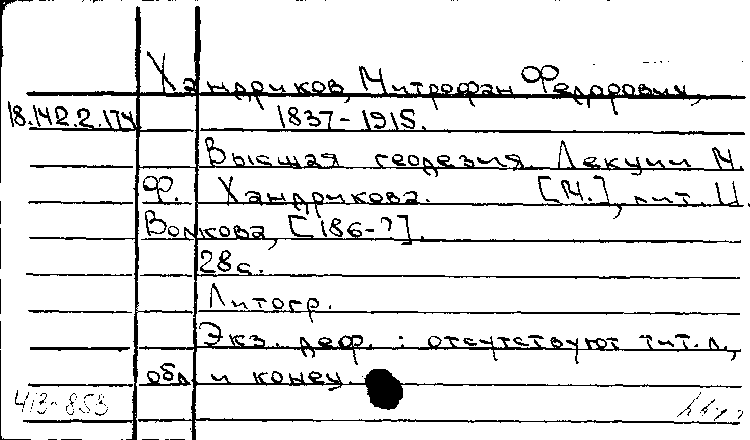 Хандриков, Митрофан Федорович,
18.142.2.174 1837-1915.
Высшая геодезия. Лекции М.
Ф. Хандрикова. [М.], лит. И.
Волкова, [186-?].
28с.
Литогр.
Экз. деф.: отсутствуют тит.л.,
обл. и конец.
413-853